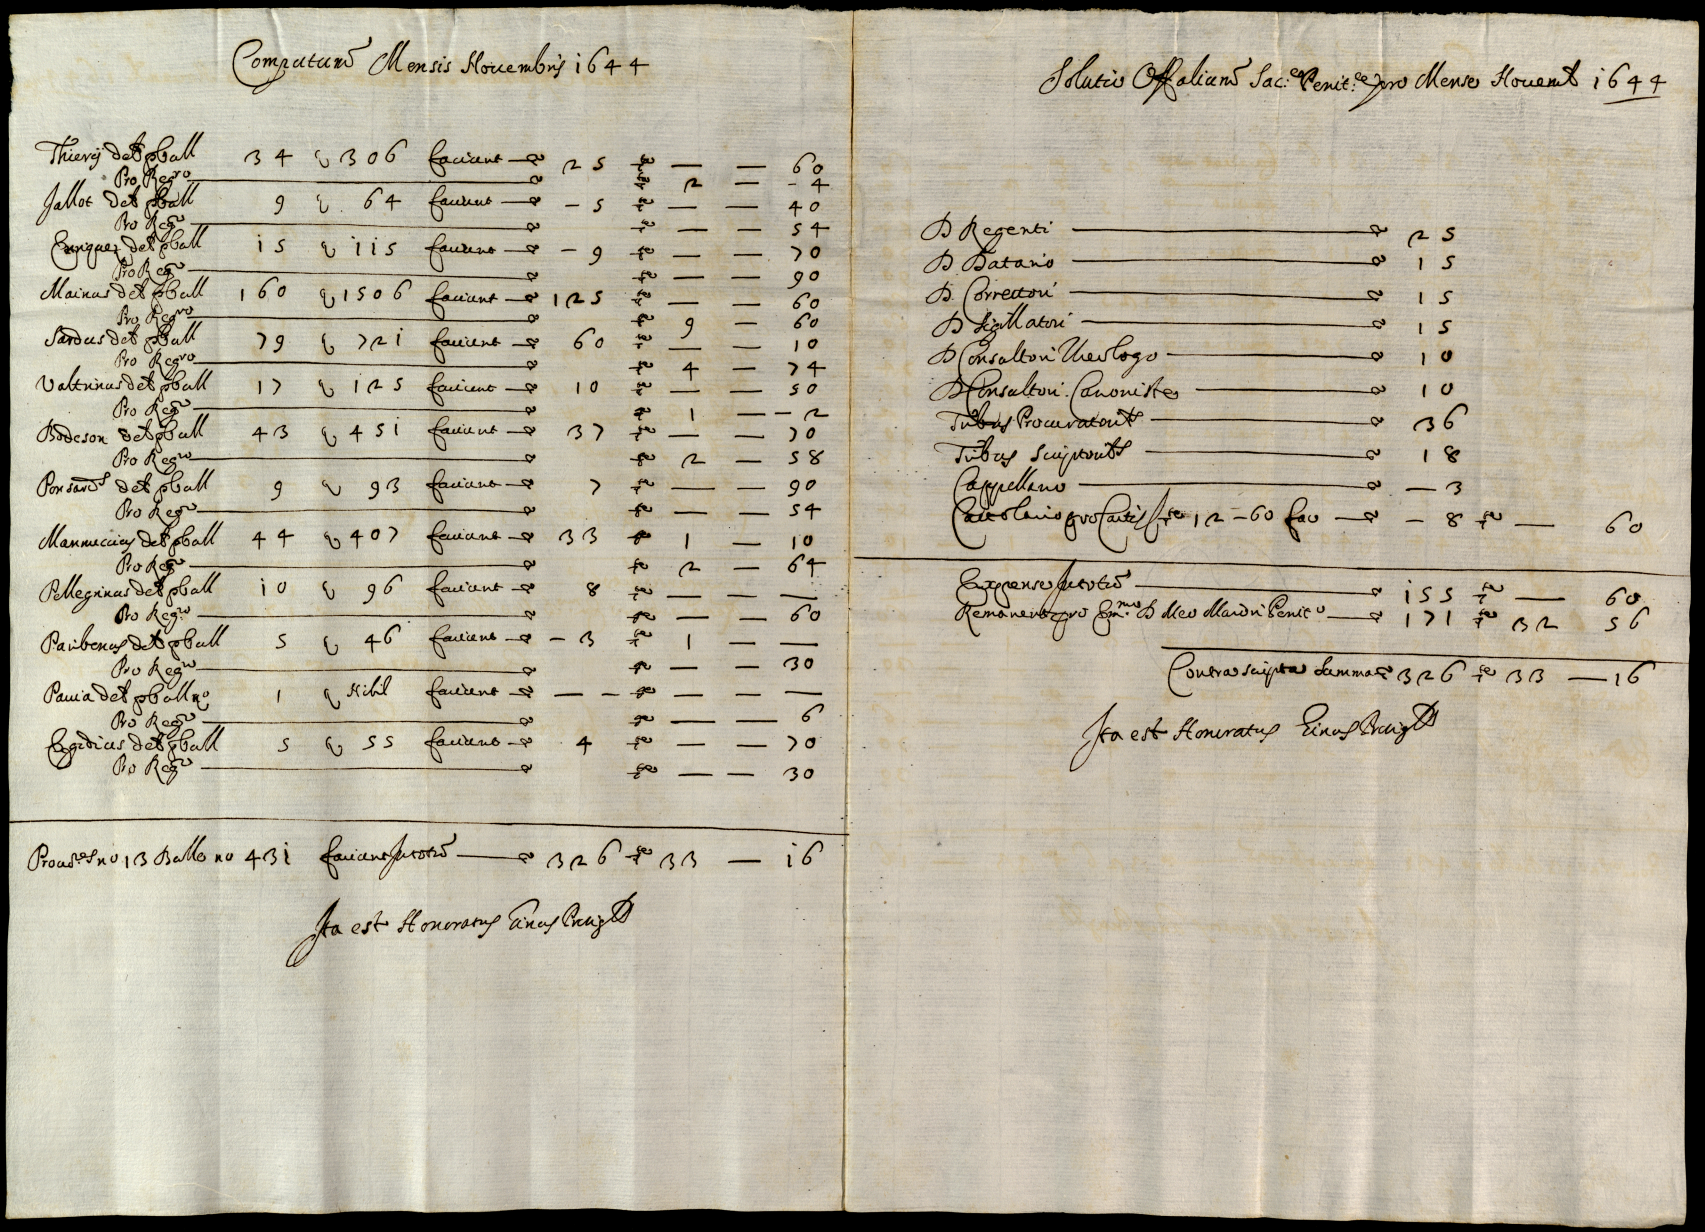 Computum Mensis Novembris 1644
Thierij det pball 34 q 306 faciunt 25 60
Pro Regro 2 — - 4
Jallot det pball 9 q 64 faciunt - 5 — — 40
Pro Regro — — 54
Enriquez det pball 15 q 115 faciunt - 9 — — 70
Pro Regro — — 90
Mainus det pball 160 q 1506 faciunt 125 — — 60
Pro Regro 9 — 60
Sardus det pball 79 q 721 faciunt 60 — — 10
Pro Regro 4 — 74
Valtrinus det pball 17 q 125 faciunt 10 — — 50
Pro Regro 1 — - 2
Bodeson det pball 43 q 451 faciunt 37 — — 70
Pro Regro 2 — 58
det pball 9 q 93 faciunt 7 — — 90
Pro Regro — — 54
Mannuccius det pball 44 q 407 faciunt 33 1 — 10
Pro Regro 2 — 64
Pellegrinus det pball 10 q 96 faciunt 8 — — —
Pro Regro — — 60
det pball 5 q 46 faciunt - 3 1 — —
Pro Regro — — 30
Pavia det pball no 1 q Nihil faciunt — - — — —
Pro Regro — — 6
Egidius det pball 5 q 55 faciunt 4 — — 70
Pro Regro — — 30
no 13 Balle no 431 faciunt in totum 326 33 — 16
Ita est Honoratus
Solutio Offalium Sac.e Penit.e pro Mense Novemb 1644
D Regenti 25
D. Datario 15
D. Correctori 15
D Sigillatori 15
D Consultori Theologo 10
D Consultori Canoniste 10
Tribus Procuratorib 36
Tribus Scriptorib 18
Cappellano — 3
Cartolario pro Cartis 12 - 60 fac - 8 — 60
Expense in totum 155 — 60
Remanent pro Em.mo D Meo Maiori Penit.o 171 32 56
Contrascripta Summa 326 33 — 16
Ita est Honoratus